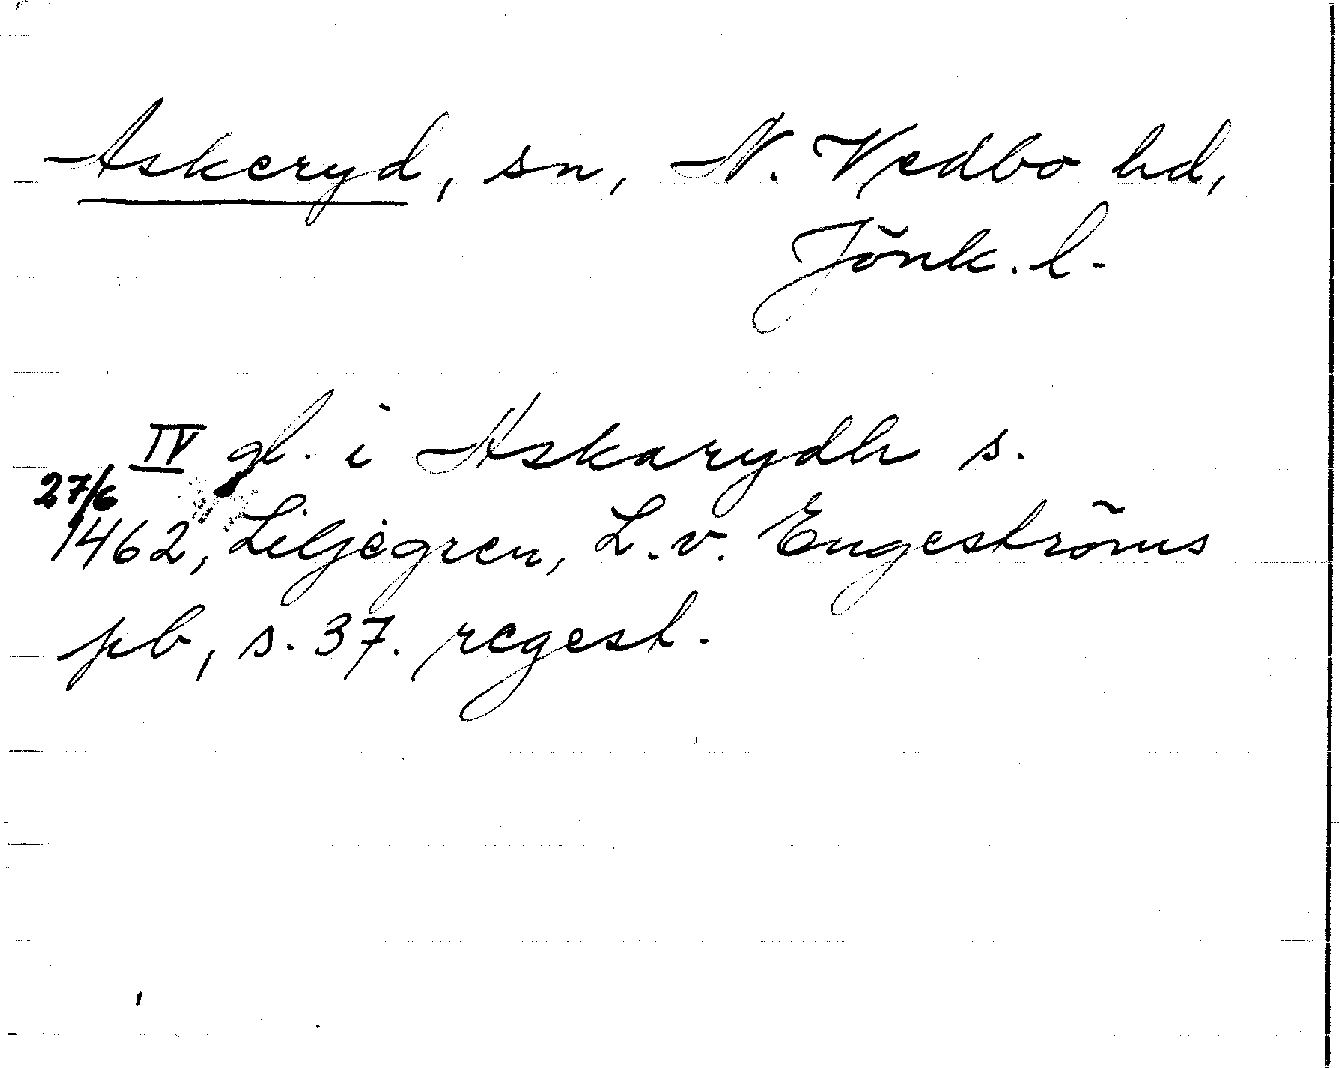 Askeryd, sn, N. Vedbo hd,
Jönk. l.
IV gl. i Askarydh s.
27/6
1462, Liljegren, L. v. Engeströms
pb, s. 37. regest.